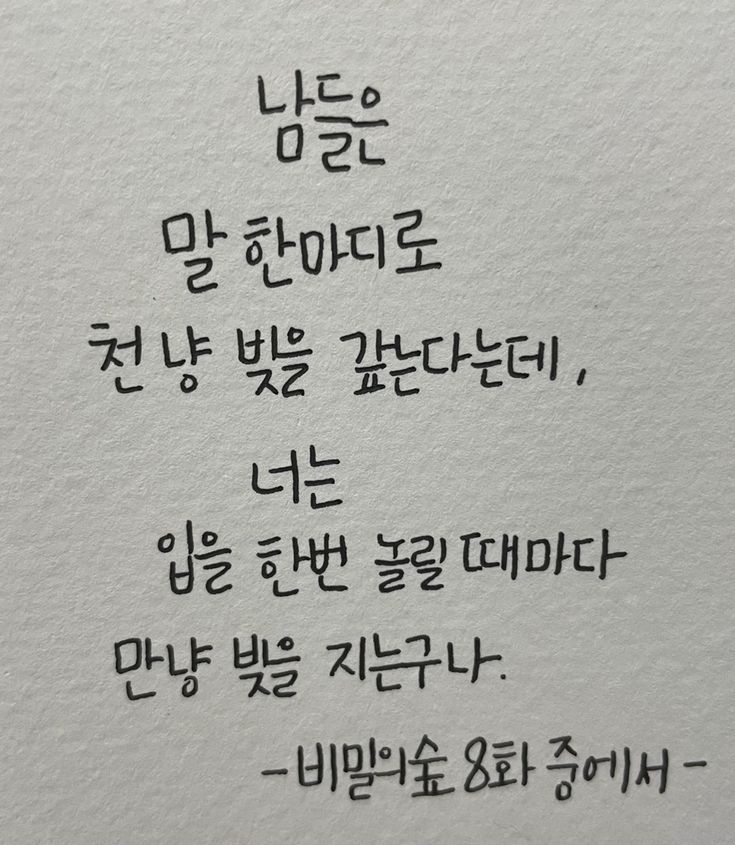 남들은
말 한마디로
천냥 빚을 갚는다는데,
너는
입을 한번 놀릴 때마다
만냥 빚을 지는구나.
-비밀의숲 8화 중에서-